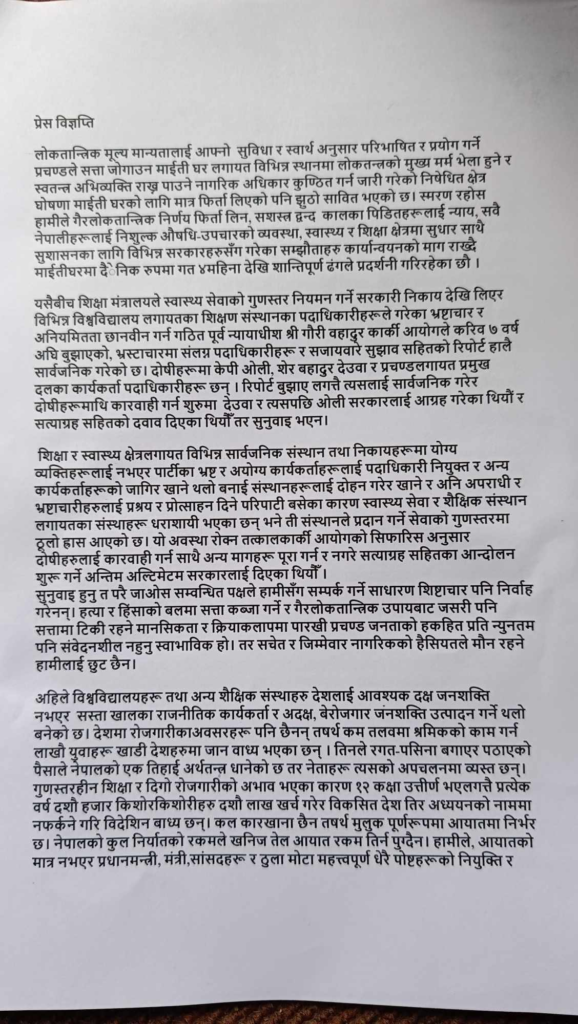 प्रेस विज्ञप्ति
लोकतान्त्रिक मूल्य मान्यतालाई आफ्नो सुविधा र स्वार्थ अनुसार परिभाषित र प्रयोग गर्ने
प्रचण्डले सत्ता जोगाउन माईती घर लगायत विभिन्न स्थानमा लोकतन्त्रको मुख्य मर्म भेला हुने र
स्वतन्त्र अभिव्यक्ति राख्न पाउने नागरिक अधिकार कुण्ठित गर्न जारी गरेको निषेधित क्षेत्र
घोषणा माईती घरको लागि मात्र फिर्ता लिएको पनि झुठो सावित भएको छ। स्मरण रहोस
हामीले गैरलोकतान्त्रिक निर्णय फिर्ता लिन, सशस्त्र द्वन्द कालका पिडितहरूलाई न्याय, सवै
नेपालीहरूलाई निशुल्क औषधि-उपचारको व्यवस्था, स्वास्थ्य र शिक्षा क्षेत्रमा सुधार साथै
सुशासनका लागि विभिन्न सरकारहरुसँग गरेका सम्झौताहरु कार्यान्वयनको माग राख्दै
माईतीघरमा दैनिक रुपमा गत ४महिना देखि शान्तिपूर्ण ढंगले प्रदर्शनी गरिरहेका छौ ।
यसैबीच शिक्षा मंत्रालयले स्वास्थ्य सेवाको गुणस्तर नियमन गर्ने सरकारी निकाय देखि लिएर
विभिन्न विश्वविद्यालय लगायतका शिक्षण संस्थानका पदाधिकारीहरूले गरेका भ्रष्टाचार र
अनियमितता छानवीन गर्न गठित पूर्व न्यायाधीश श्री गौरी वहादुर कार्की आयोगले करिव ७ वर्ष
अघि बुझाएको, भ्रस्टाचारमा संलग्न पदाधिकारीहरू र सजायवारे सुझाव सहितको रिपोर्ट हालै
सार्वजनिक गरेको छ। दोषीहरूमा केपी ओली, शेर बहादुर देउवा र प्रचण्डलगायत प्रमुख
दलका कार्यकर्ता पदाधिकारीहरू छन् । रिपोर्ट बुझाए लगत्तै त्यसलाई सार्वजनिक गरेर
दोषीहरूमाथि कारवाही गर्न शुरुमा देउवा र त्यसपछि ओली सरकारलाई आग्रह गरेका थियौं र
सत्याग्रह सहितको दवाव दिएका थियौँ तर सुनुवाइ भएन।
शिक्षा र स्वास्थ्य क्षेत्रलगायत विभिन्न सार्वजनिक संस्थान तथा निकायहरूमा योग्य
व्यक्तिहरूलाई नभएर पार्टीका भ्रष्ट र अयोग्य कार्यकर्ताहरूलाई पदाधिकारी नियुक्त र अन्य
कार्यकर्ताहरूको जागिर खाने थलो बनाई संस्थानहरूलाई दोहन गरेर खाने र अनि अपराधी र
भ्रष्टाचारीहरुलाई प्रश्रय र प्रोत्साहन दिने परिपाटी बसेका कारण स्वास्थ्य सेवा र शैक्षिक संस्थान
लगायतका संस्थाहरू धराशायी भएका छन् भने ती संस्थानले प्रदान गर्ने सेवाको गुणस्तरमा
ठूलो ह्रास आएको छ। यो अवस्था रोक्न तत्कालकार्की आयोगको सिफारिस अनुसार
दोषीहरुलाई कारवाही गर्न साथै अन्य मागहरू पूरा गर्न र नगरे सत्याग्रह सहितका आन्दोलन
शुरू गर्ने अन्तिम अल्टिमेटम सरकारलाई दिएका थियौँ ।
सुनुवाइ हुनु त परै जाओस सम्वन्धित पक्षले हामीसँग सम्पर्क गर्ने साधारण शिष्टाचार पनि निर्वाह
गरेनन्। हत्या र हिंसाको बलमा सत्ता कब्जा गर्ने र गैरलोकतान्त्रिक उपायबाट जसरी पनि
सत्तामा टिकी रहने मानसिकता र क्रियाकलापमा पारखी प्रचण्ड जनताको हकहित प्रति न्युनतम
पनि संवेदनशील नहुनु स्वाभाविक हो। तर सचेत र जिम्मेवार नागरिकको हैसियतले मौन रहने
हामीलाई छुट छैन।
अहिले विश्वविद्यालयहरू तथा अन्य शैक्षिक संस्थाहरु देशलाई आवश्यक दक्ष जनशक्ति
नभएर सस्ता खालका राजनीतिक कार्यकर्ता र अदक्ष, बेरोजगार जनशक्ति उत्पादन गर्ने थलो
बनेको छ। देशमा रोजगारीकाअवसरहरू पनि छैनन् तषर्थ कम तलवमा श्रमिकको काम गर्न
लाखौ युवाहरू खाडी देशहरुमा जान वाध्य भएका छन् । तिनले रगत-पसिना बगाएर पठाएको
पैसाले नेपालको एक तिहाई अर्थतन्त्र धानेको छ तर नेताहरू त्यसको अपचलनमा व्यस्त छन्।
गुणस्तरहीन शिक्षा र दिगो रोजगारीको अभाव भएका कारण १२ कक्षा उत्तीर्ण भएलगत्तै प्रत्येक
वर्ष दशौ हजार किशोरकिशोरीहरु दशौ लाख खर्च गरेर विकसित देश तिर अध्ययनको नाममा
नफर्कने गरि विदेशिन बाध्य छन्। कल कारखाना छैन तषर्थ मुलुक पूर्णरूपमा आयातमा निर्भर
छ। नेपालको कुल निर्यातको रकमले खनिज तेल आयात रकम तिर्न पुग्दैन। हामीले, आयातको
मात्र नभएर प्रधानमन्त्री, मंत्री,सांसदहरू र ठुला मोटा महत्त्वपूर्ण धेरै पोष्टहरूको नियुक्ति र